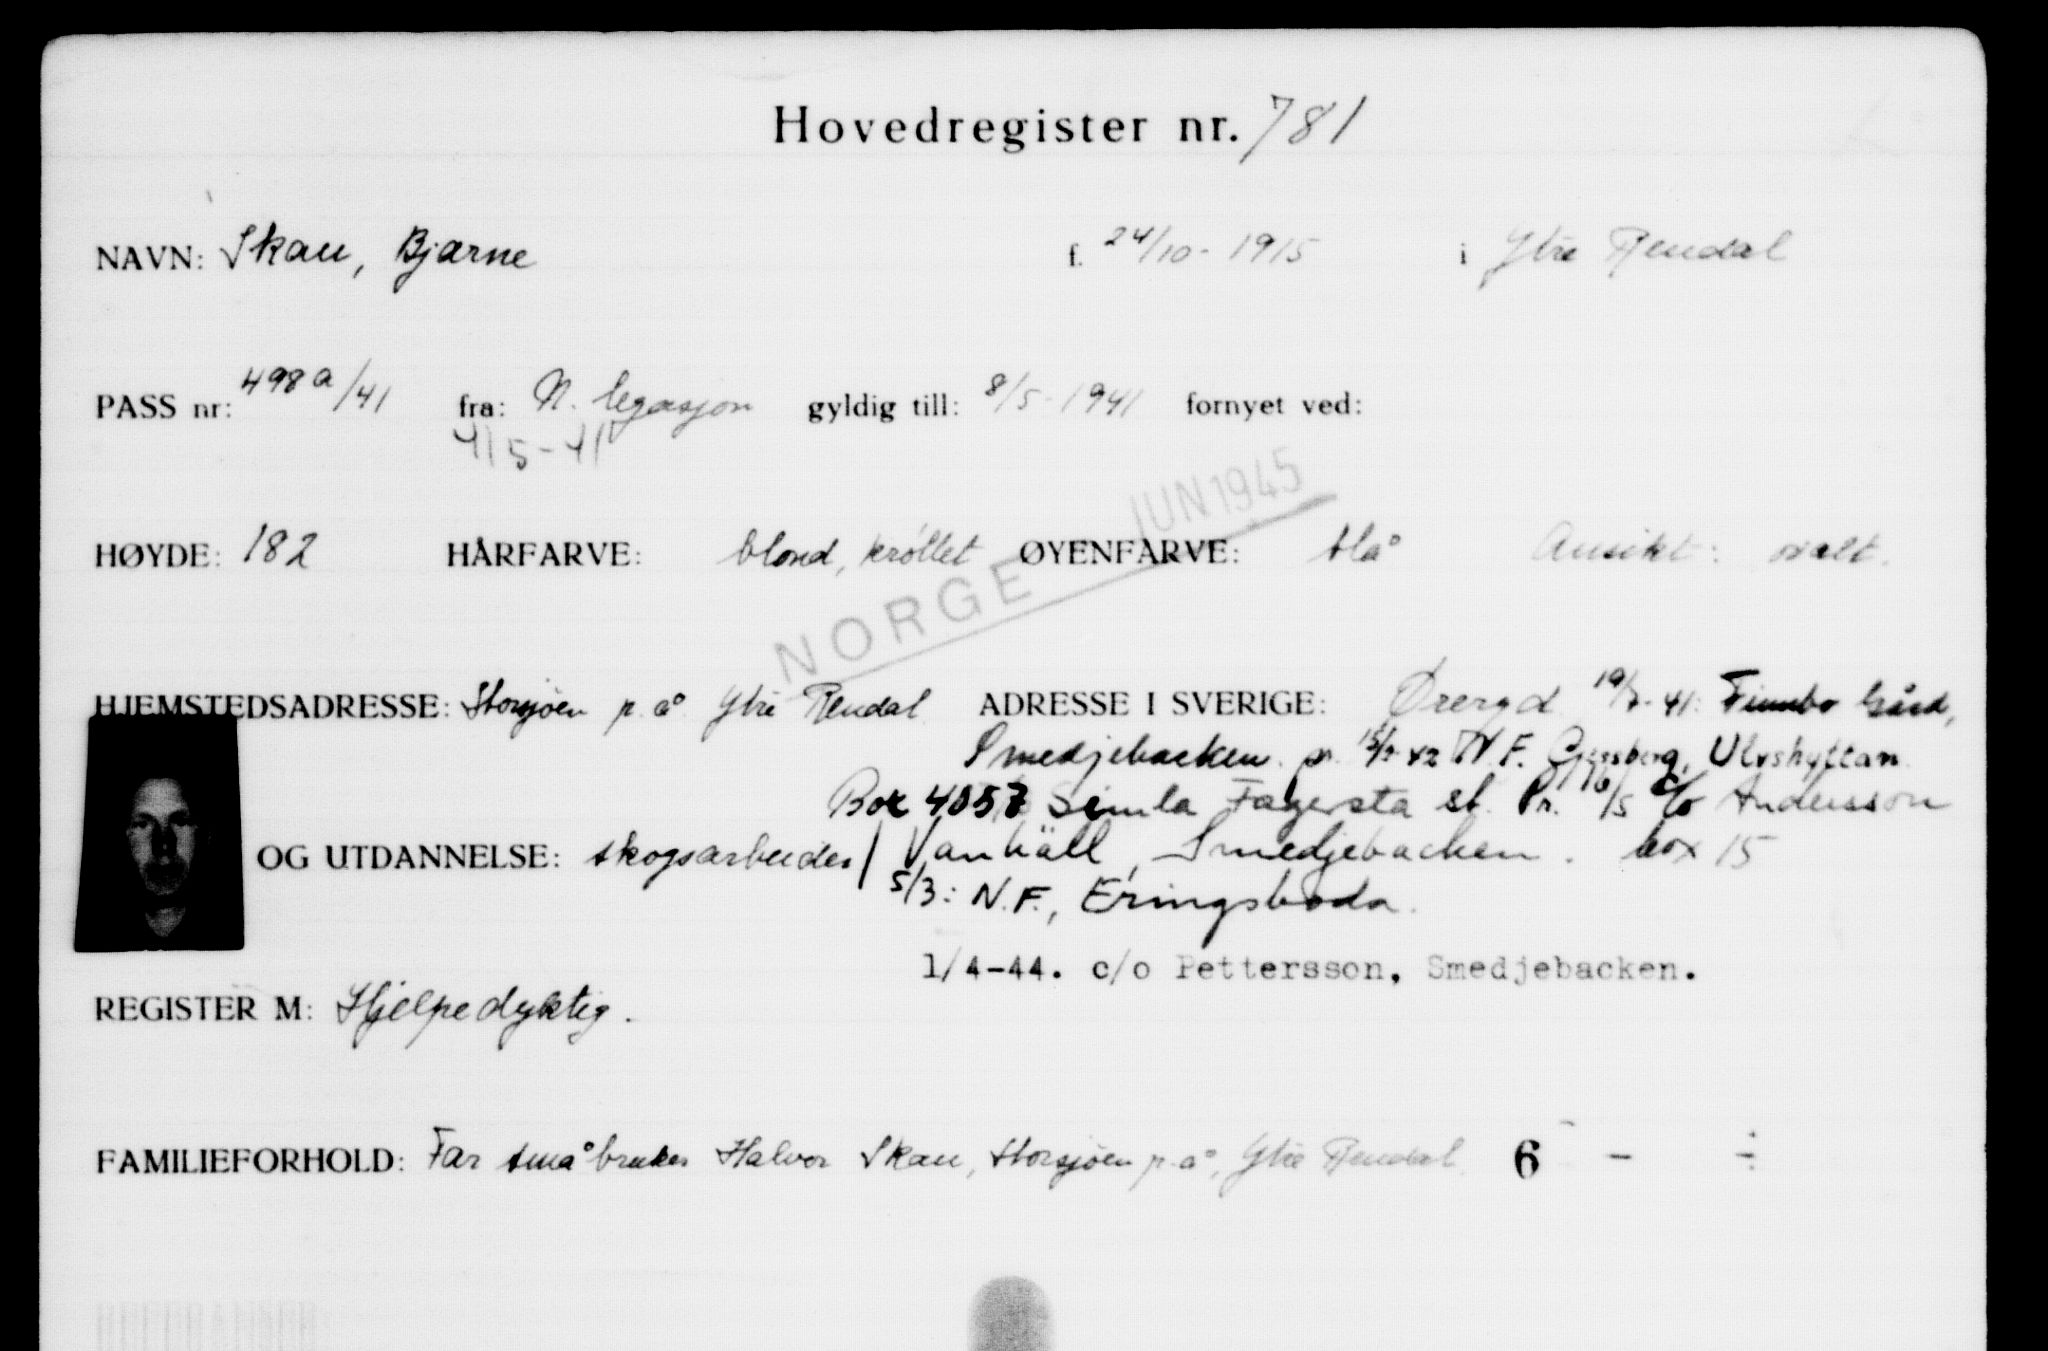 Hovedregister nr. 781
NAVN: Skau, Bjarne f. 24/10-1915 i Ytre Rendal
PASS nr: 498a/41 fra: N. legasjon gyldig till: 8/5-1941 fornyet ved:
4/5-41
JUN 1945
HØYDE: 182 HÅRFARVE: blond, krøllet ØYENFARVE: blå Ansikt: ovalt.
NORGE
HJEMSTEDSADRESSE: Storsjøen p.å. Ytre Rendal ADRESSE I SVERIGE: Øreryd 19/7-41: Finnbo Gård,
Smedjebacken. pr. 15/2-42 N.F. Gjersberg, Ulvshyttan
Box 4057 Semla Fagersta st. Pr. 16/5 c/o Andersson
OG UTDANNELSE: skogsarbeider / Vanhäll, Smedjebacken. box 15
5/3: N.F., Eringsboda.
1/4-44. c/o Pettersson, Smedjebacken.
REGISTER M: Hjelpedyktig.
FAMILIEFORHOLD: Far småbruker Halvor Skau, Storsjøen p.å., Ytre Rendal 6 - ÷